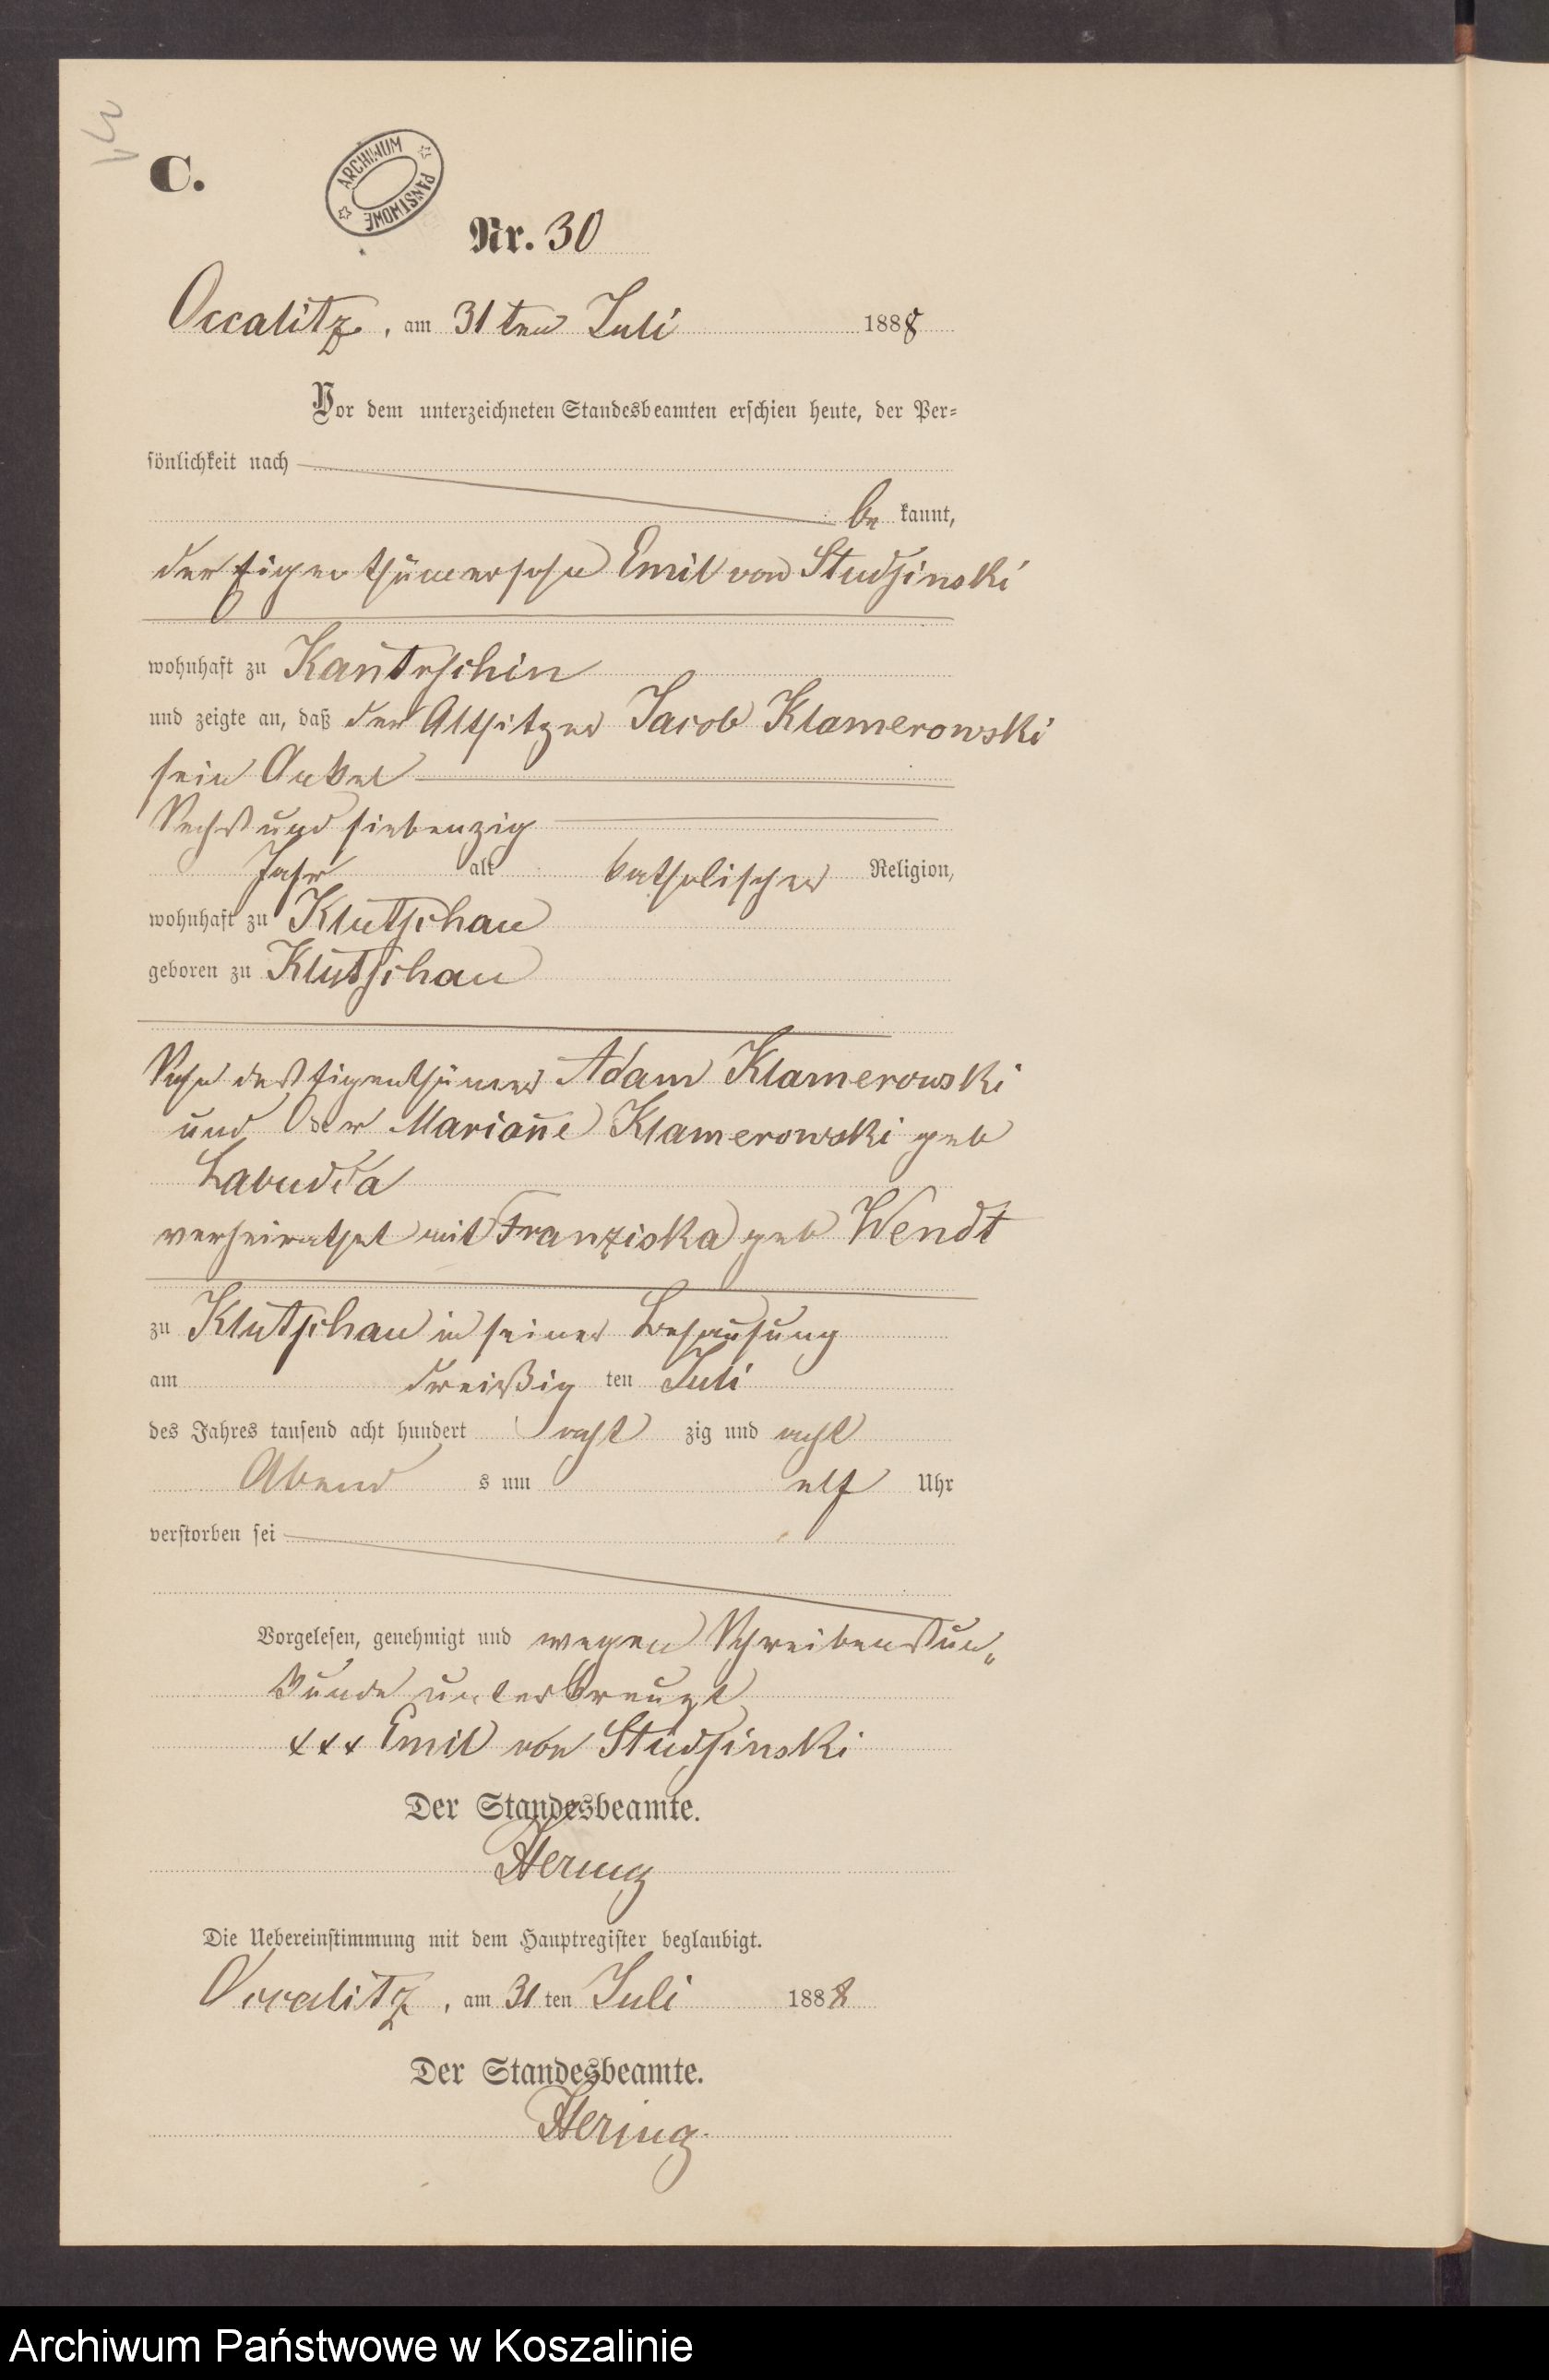 C.
ARCHIWUM PAŃSTWOWE
Nr. 30
Occalitz, am 31ten Juli 1888
Vor dem unterzeichneten Standesbeamten erschien heute, der Per=
sönlichkeit nach
be kannt,
der Eigenthümersohn Emil von Studsinski
wohnhaft zu Kantrschin
und zeigte an, daß der Altsitzer Jacob Klamerowski
sein Onkel
Sechs und siebenzig
Jahr alt katholischer Religion,
wohnhaft zu Klutschau
geboren zu Klutschau
Sohn des Eigenthümer Adam Klamerowski
und der Marianne Klamerowski geb
Labudda
verheirathet mit Franziska geb Wendt
zu Klutschau in seiner Behausung
am dreißig ten Juli
des Jahres tausend acht hundert acht zig und acht
Abend s um elf Uhr
verstorben sei
Vorgelesen, genehmigt und wegen Schreibensun„
kunde unterkreuzt
xxx Emil von Studsinski
Der Standesbeamte.
Hering
Die Uebereinstimmung mit dem Hauptregister beglaubigt.
Occalitz, am 31 ten Juli 1888
Der Standesbeamte.
Hering.
Archiwum Państwowe w Koszalinie